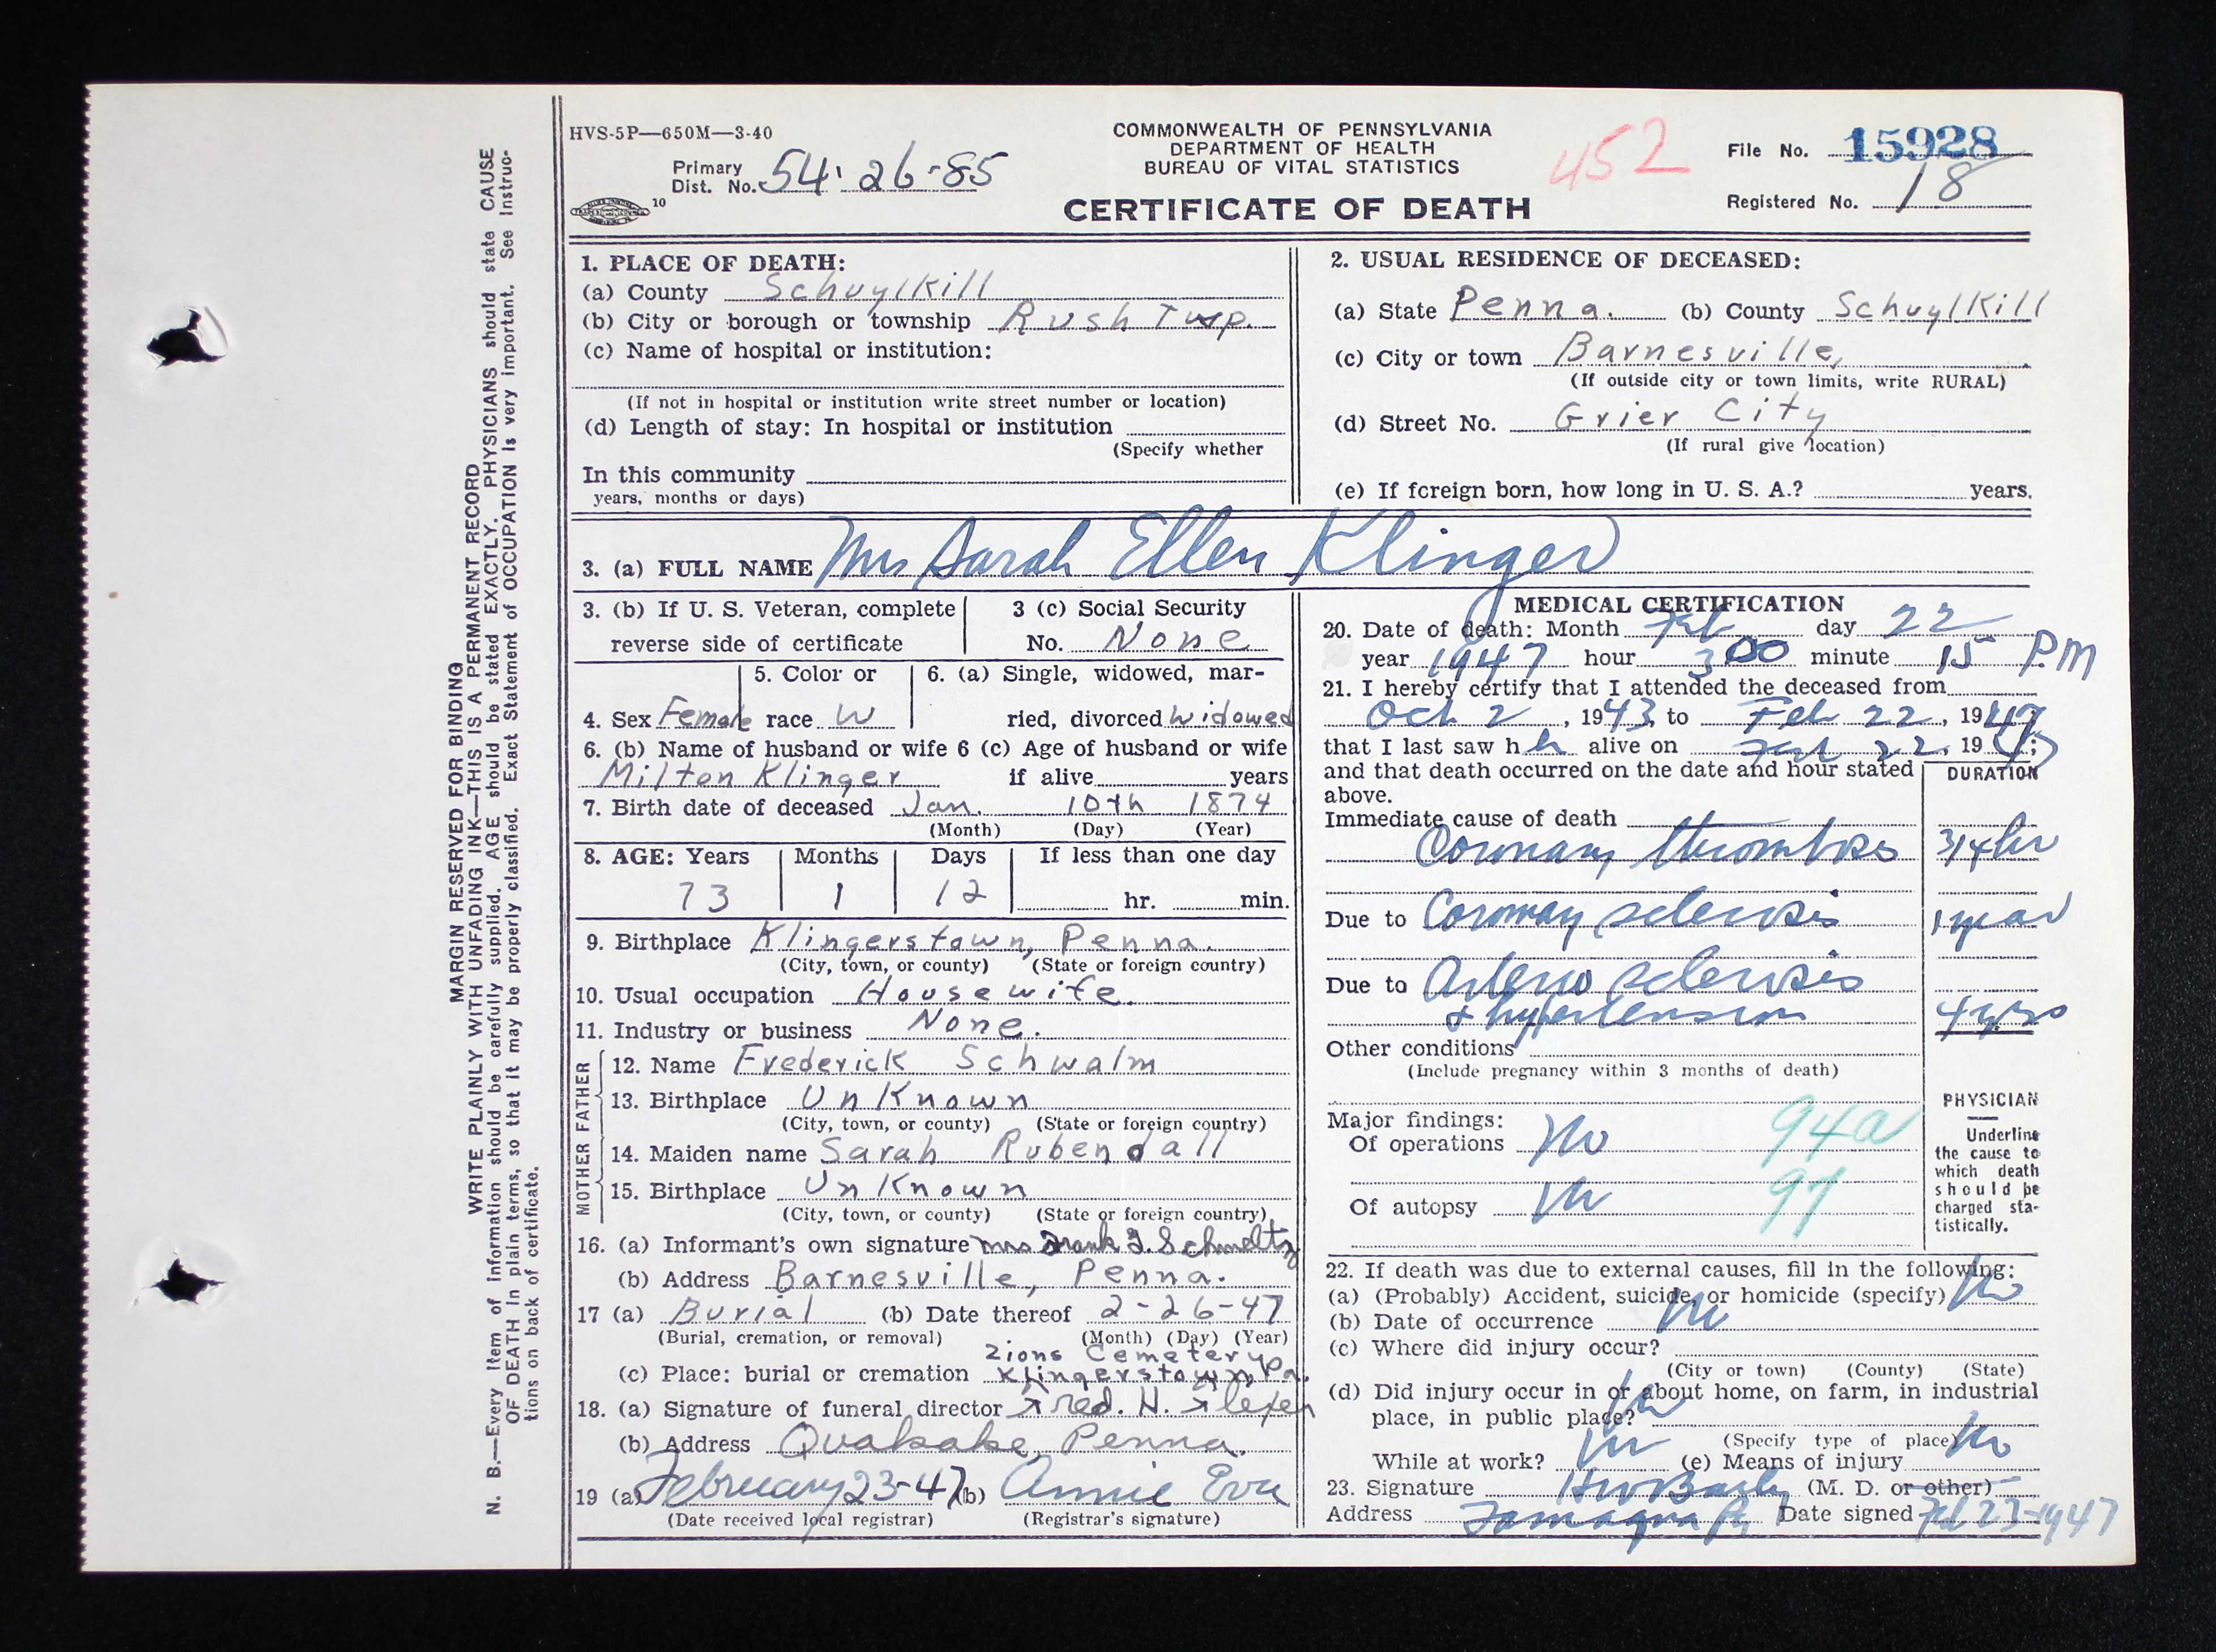 HVS-5P—650M—3-40
COMMONWEALTH OF PENNSYLVANIA
DEPARTMENT OF HEALTH
BUREAU OF VITAL STATISTICS
CERTIFICATE OF DEATH
Primary
Dist. No. 54-26-85
10
452
File No. 15928
Registered No. 18
MARGIN RESERVED FOR BINDING
WRITE PLAINLY WITH UNFADING INK—THIS IS A PERMANENT RECORD
N. B.—Every item of information should be carefully supplied. AGE should be stated EXACTLY. PHYSICIANS should state CAUSE
OF DEATH in plain terms, so that it may be properly classified. Exact Statement of OCCUPATION is very important. See Instruc-
tions on back of certificate.
1. PLACE OF DEATH:
(a) County Schuylkill
(b) City or borough or township Rush Twp.
(c) Name of hospital or institution:
(If not in hospital or institution write street number or location)
(d) Length of stay: In hospital or institution
(Specify whether
In this community
years, months or days)
2. USUAL RESIDENCE OF DECEASED:
(a) State Penna. (b) County Schuylkill
(c) City or town Barnesville,
(If outside city or town limits, write RURAL)
(d) Street No. Grier City
(If rural give location)
(e) If foreign born, how long in U. S. A.? years.
3. (a) FULL NAME Mrs Sarah Ellen Klinger
3. (b) If U. S. Veteran, complete
reverse side of certificate
3 (c) Social Security
No. None
4. Sex Female
5. Color or
race W
6. (a) Single, widowed, mar-
ried, divorced Widowed
6. (b) Name of husband or wife
Milton Klinger
6 (c) Age of husband or wife
if alive years
7. Birth date of deceased Jan. 10th 1874
(Month) (Day) (Year)
8. AGE: Years Months Days If less than one day
73 1 12 hr. min.
9. Birthplace Klingerstown, Penna.
(City, town, or county) (State or foreign country)
10. Usual occupation Housewife.
11. Industry or business None.
FATHER
12. Name Frederick Schwalm
13. Birthplace Unknown
(City, town, or county) (State or foreign country)
MOTHER
14. Maiden name Sarah Rubendall
15. Birthplace Unknown
(City, town, or county) (State or foreign country)
16. (a) Informant's own signature Mrs Frank J. Schmeltz
(b) Address Barnesville, Penna.
17 (a) Burial (b) Date thereof 2-26-47
(Burial, cremation, or removal) (Month) (Day) (Year)
Zions Cemetery
(c) Place: burial or cremation Klingerstown, Pa.
18. (a) Signature of funeral director Fred. H.
(b) Address Quakake, Penna.
19 (a) February 23-47 (b) Annie Eva
(Date received local registrar) (Registrar's signature)
MEDICAL CERTIFICATION
20. Date of death: Month Feb day 22
year 1947 hour 3 00 minute 15 P.M
21. I hereby certify that I attended the deceased from
Oct 2, 1943, to Feb 22, 1947
that I last saw h alive on Feb 22, 1947;
and that death occurred on the date and hour stated
above.
DURATION
Immediate cause of death
Coronary thrombosis 3/4 hr
Due to Coronary sclerosis 1 year
Due to Arterio sclerosis
& hypertension 4 yrs
Other conditions
(Include pregnancy within 3 months of death)
Major findings:
Of operations No 94a
Of autopsy No 97
PHYSICIAN
Underline
the cause to
which death
should be
charged sta-
tistically.
22. If death was due to external causes, fill in the following:
(a) (Probably) Accident, suicide, or homicide (specify) No
(b) Date of occurrence No
(c) Where did injury occur?
(City or town) (County) (State)
(d) Did injury occur in or about home, on farm, in industrial
place, in public place? No
(Specify type of place)
While at work? No (e) Means of injury No
23. Signature (M. D. or other)
Address Tamaqua Pa Date signed Feb 23-1947